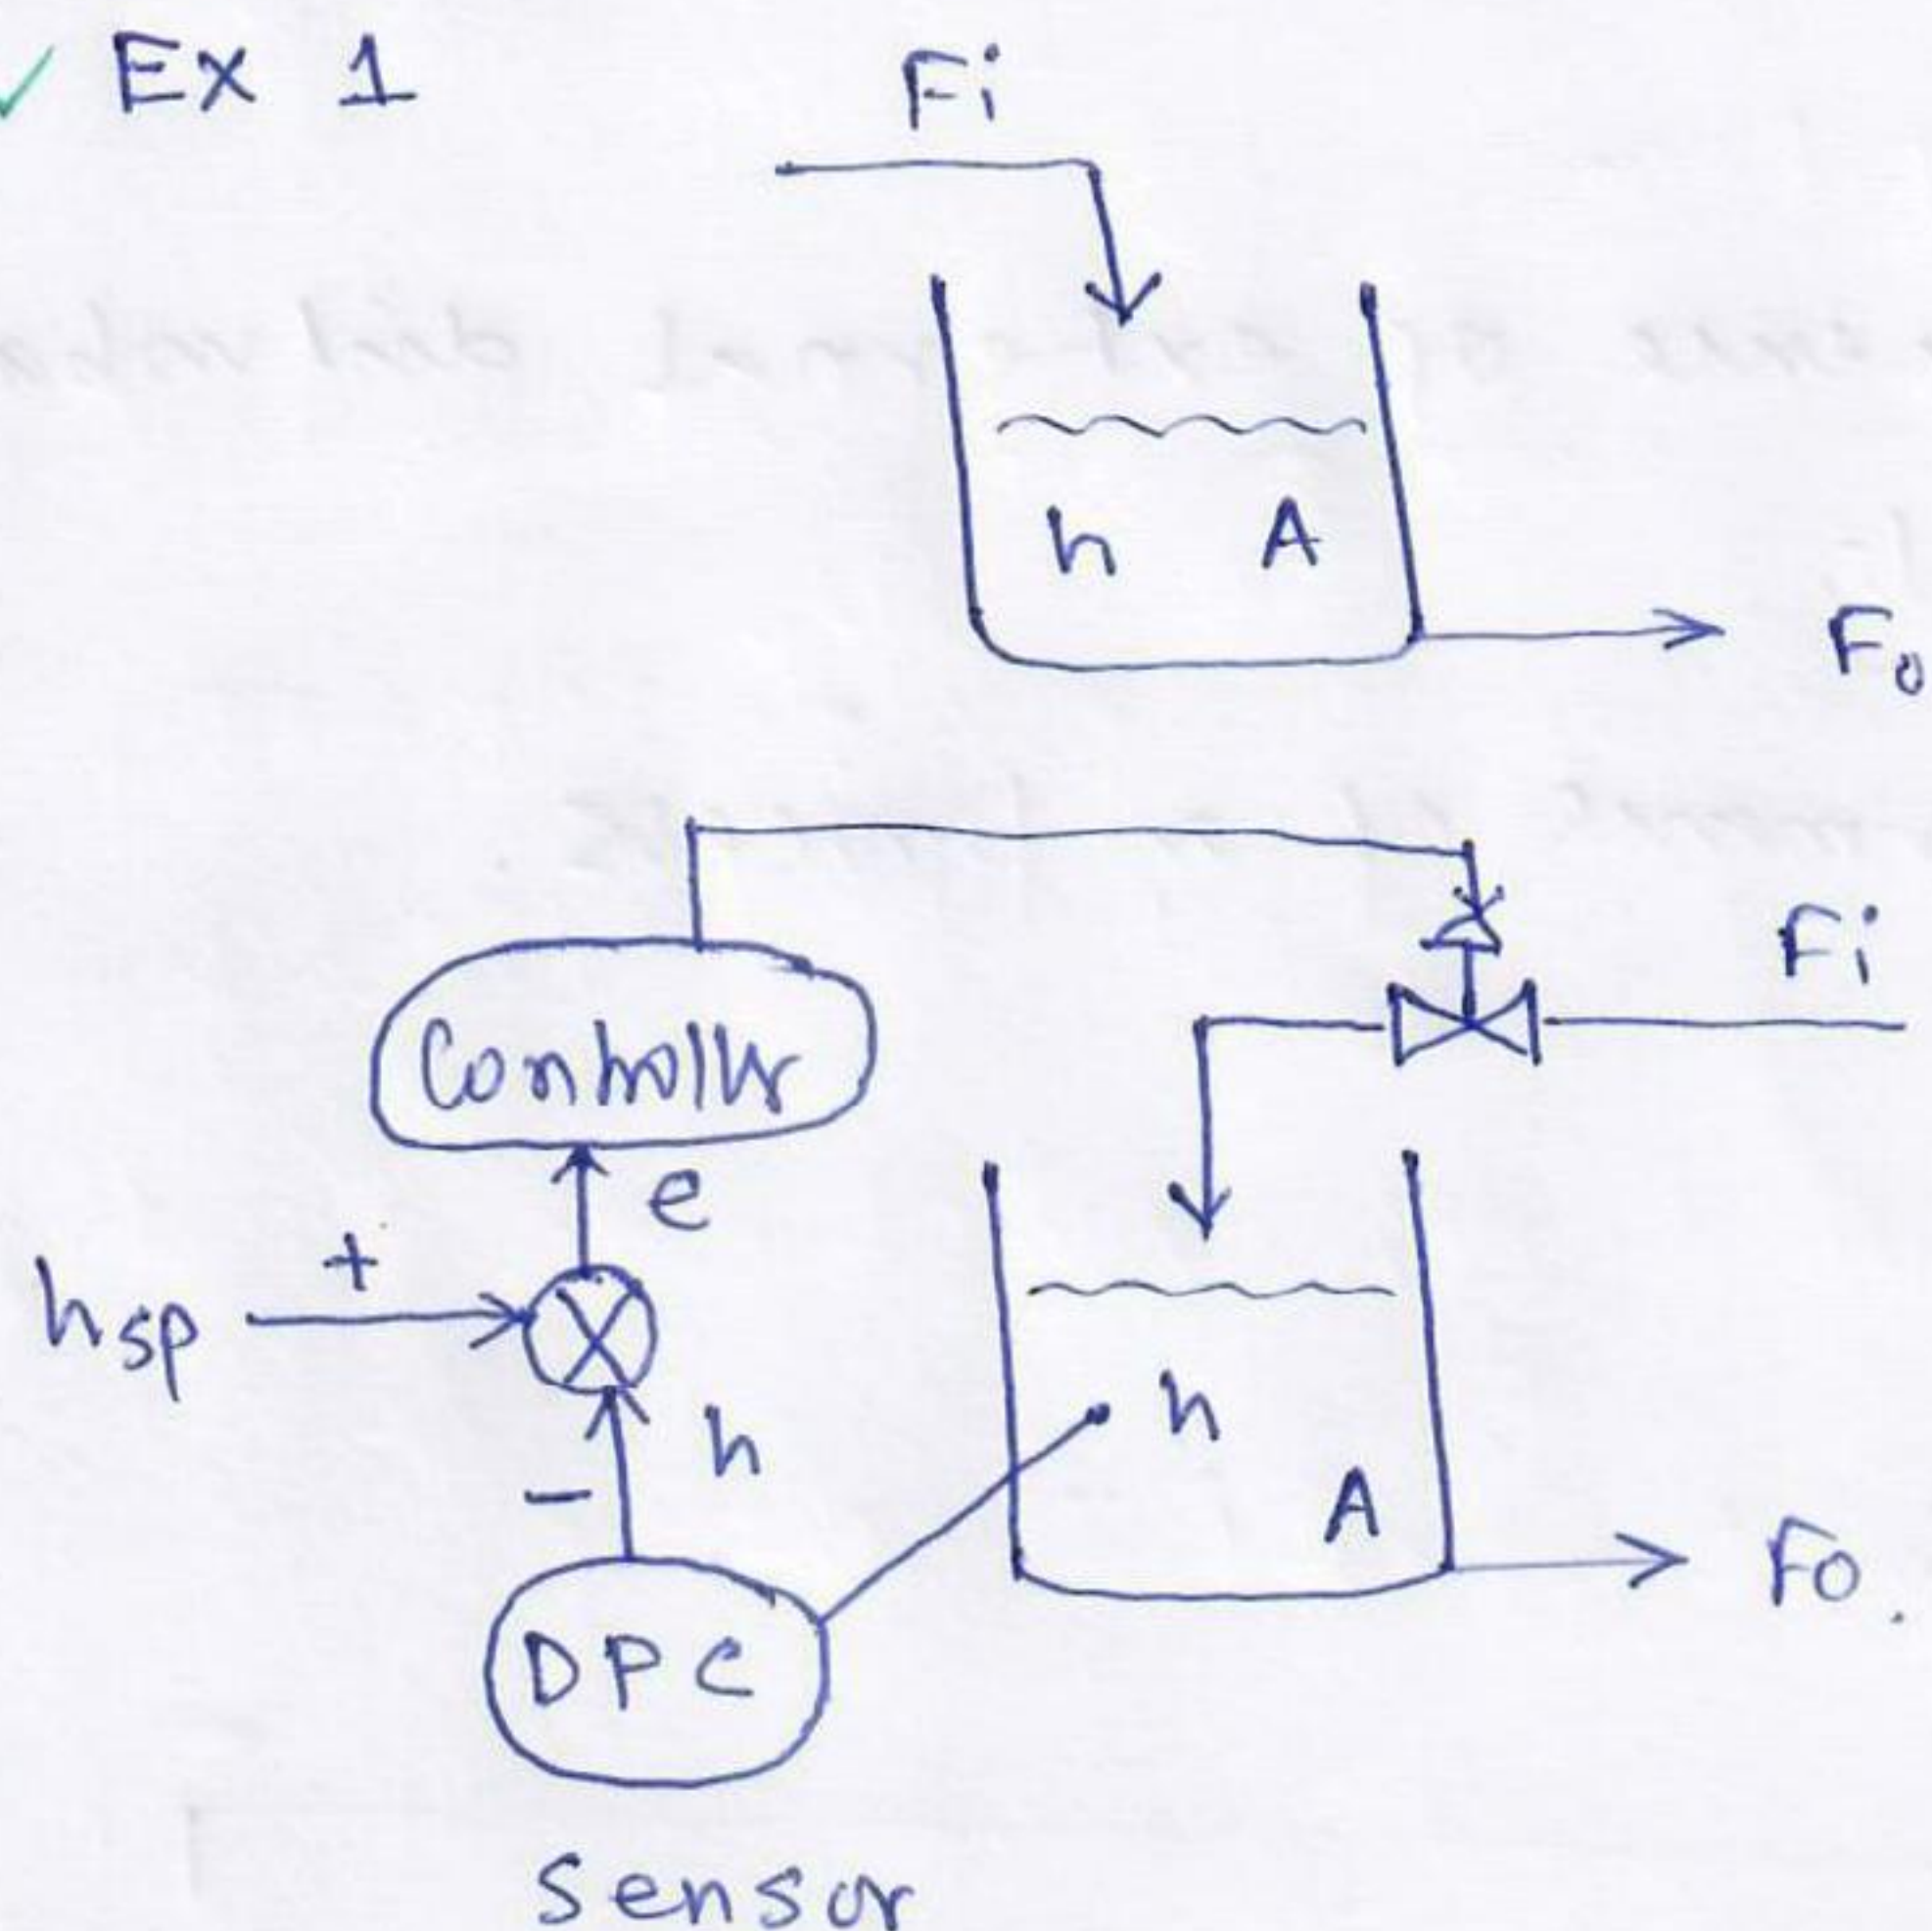 Ex 1
Fi
h A
Fo
Fi
Controller
e
+
hsp
h
-
h
A
Fo.
DPC
Sensor